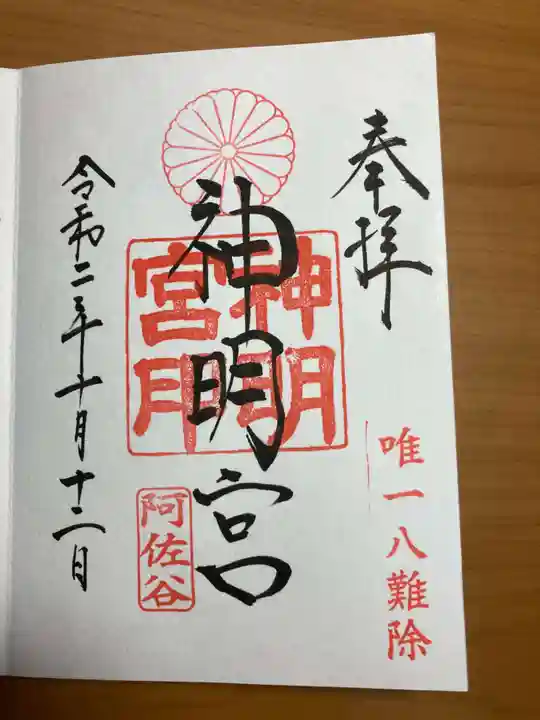 奉拝
唯一八難除
神明宮
神明宮印
阿佐谷
令和二年十月十二日